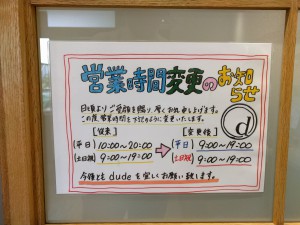 営業時間変更のお知らせ
日頃より ご愛顧を賜り、厚くお礼申し上げます。
この度、営業時間を下記のように変更いたします。
[従来] [変更後]
(平日) 10:00～20:00 → (平日) 9:00～19:00
(土日祝) 9:00～19:00 (土日祝) 9:00～19:00
今後とも dude を宜しくお願い致します。
d